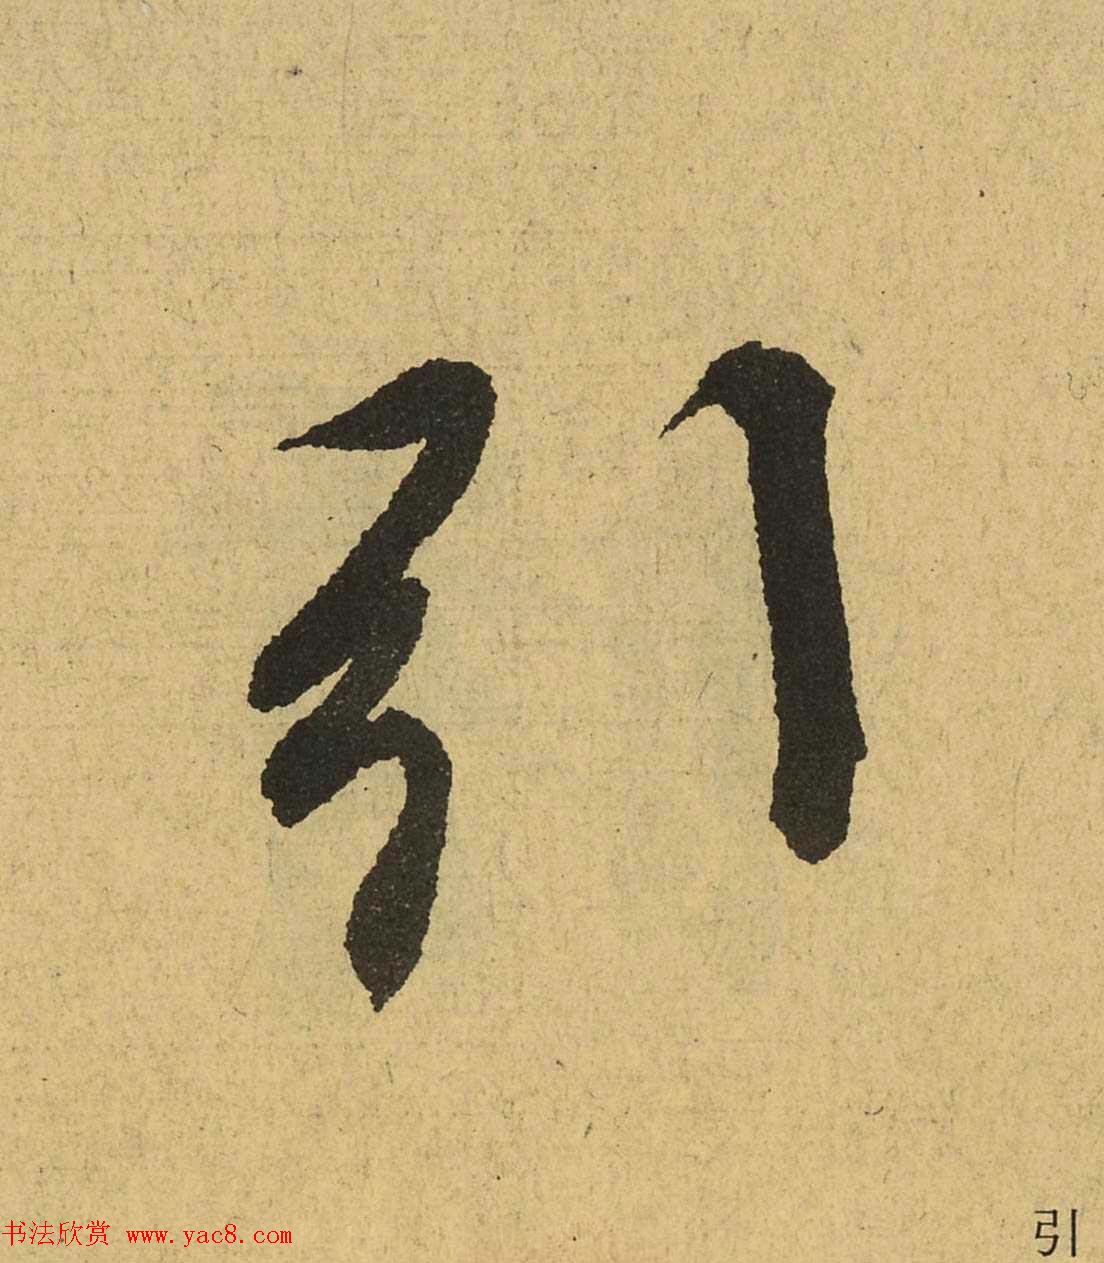 引
书法欣赏 www.yac8.com
引